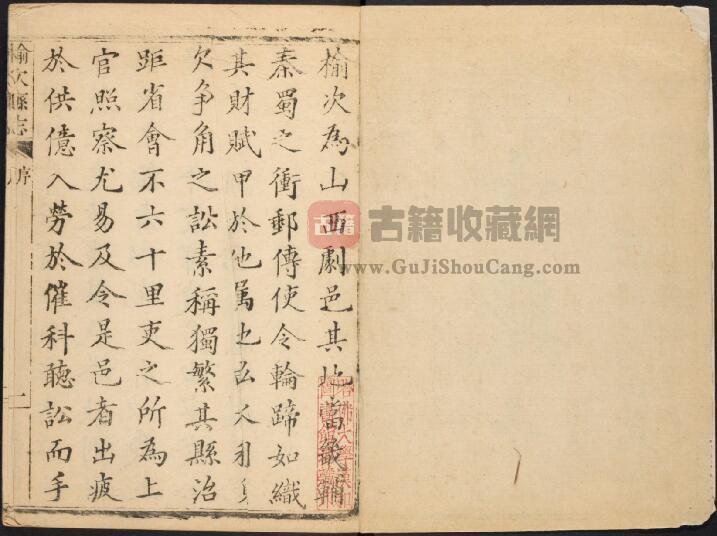 榆次為山西劇邑其地當畿輔
秦蜀之衝郵傳使令輪蹄如織
其財賦甲於他属也
欠争角之訟素稱獨繁其縣治
距省會不六十里吏之所為上
官照察尤易及令是邑者出疲
於供億入勞於催科聽訟而手
榆次縣志
序
一
古籍
古籍收藏網
www.GuJiShouCang.com